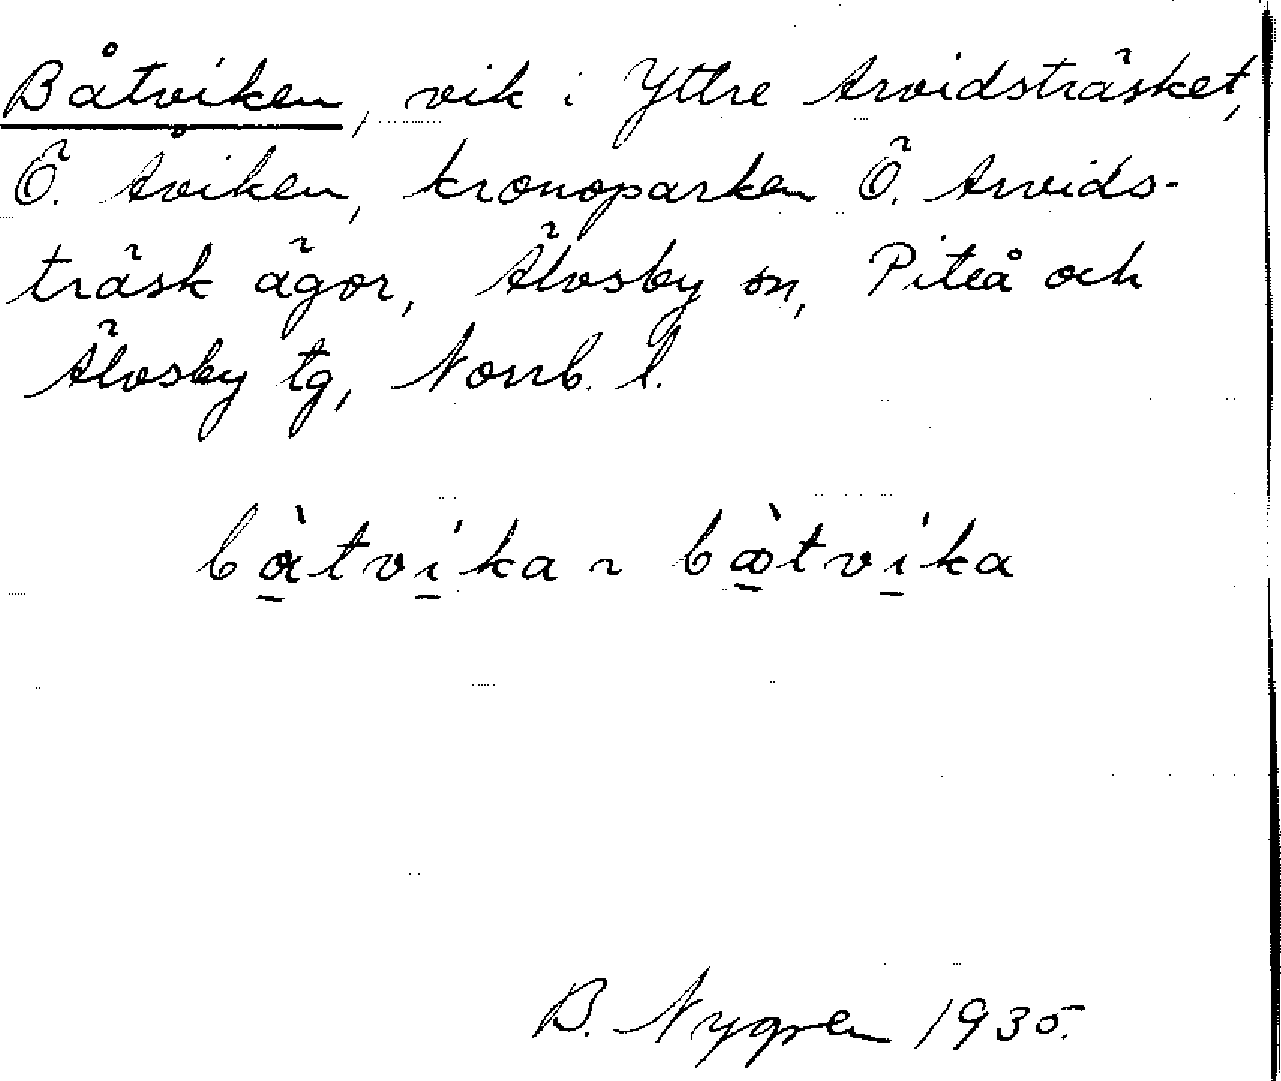 Båtviken, vik i Yttre Arvidsträsket,
Ö. Åviken, kronoparken Ö. Arvids-
träsk ägor, Älvsby sn, Piteå och
Älvsby tg, Norrb. l.
bàtvíka ~ bòtvíka
B. Nygren 1935.